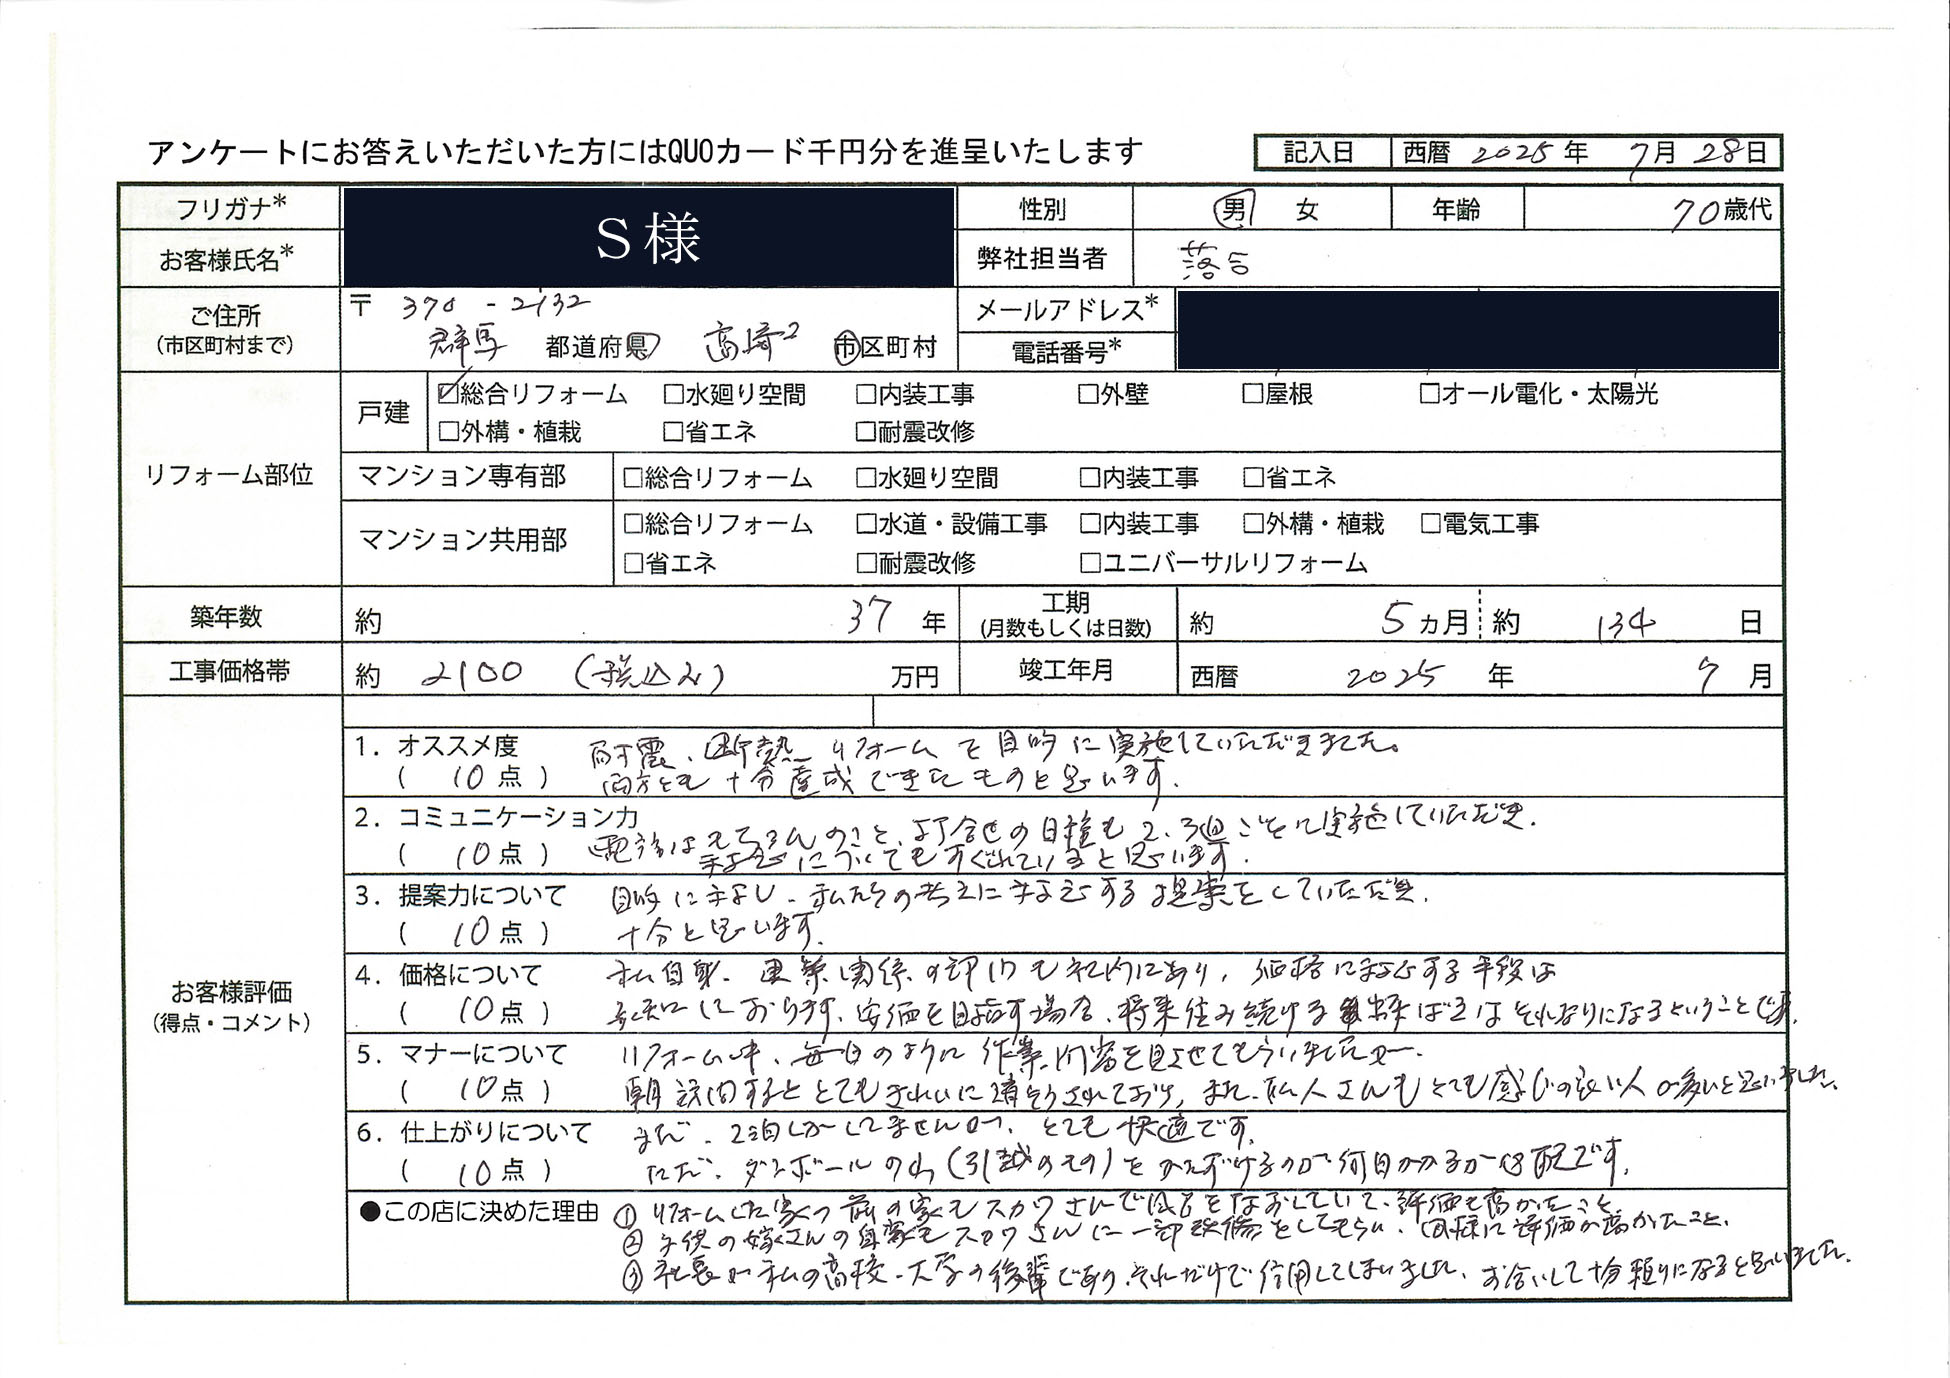 アンケートにお答えいただいた方にはQUOカード千円分を進呈いたします
記入日 西暦 2025 年 7月 28日
フリガナ* S様 性別 男 女 年齢 70歳代
お客様氏名* 弊社担当者 落合
ご住所 (市区町村まで) 〒 370-2132 メールアドレス*
群馬 都道府県 高崎 市区町村 電話番号*
リフォーム部位
戸建 ☑総合リフォーム □水廻り空間 □内装工事 □外壁 □屋根 □オール電化・太陽光
□外構・植栽 □省エネ □耐震改修
マンション専有部 □総合リフォーム □水廻り空間 □内装工事 □省エネ
マンション共用部 □総合リフォーム □水道・設備工事 □内装工事 □外構・植栽 □電気工事
□省エネ □耐震改修 □ユニバーサルリフォーム
築年数 約 37 年 工期 (月数もしくは日数) 約 5ヵ月 約 134 日
工事価格帯 約 2100 (税込み) 万円 竣工年月 西暦 2025 年 7 月
お客様評価 (得点・コメント)
1. オススメ度 耐震、断熱リフォームを目的に実施していただきました。
( 10点 ) 両方とも十分達成できたものと思います。
2. コミュニケーション力
( 10点 ) 電話はもちろんのこと、打合せの日程も2、3週ごとに実施していただき、
対応についてもすぐれていると思います。
3. 提案力について 目的に対し、私たちの考えに対応する提案をしていただき、
( 10点 ) 十分と思います。
4. 価格について 私自身、建築関係の部門も社内にあり、価格に対応する手段は
( 10点 ) 承知しております。安価を目指す場合、将来住み続ける 出来ばえはそれなりになるということです。
5. マナーについて リフォーム中、毎日のように作業内容を見させてもらいましたが、
( 10点 ) 朝訪問するととてもきれいに清そうされており、また、職人さんもとても感じの良い人が多いと思いました。
6. 仕上がりについて まだ、2泊しかしてませんが、とても快適です。
( 10点 ) ただ、ダンボールの山(引越のもの)をかたずけるのが何日かかるか心配です。
●この店に決めた理由 ① リフォームした家の前の家もスカワさんで をなおしていて、評価も高かったこと
② 子供の嫁さんの自家もスカワさんに一部改修をしてもらい、同様に評価が高かったこと、
③ 社長が私の高校、大学の後輩であり、それだけで信用してしまいました、お会いして十分頼りになると思いました。